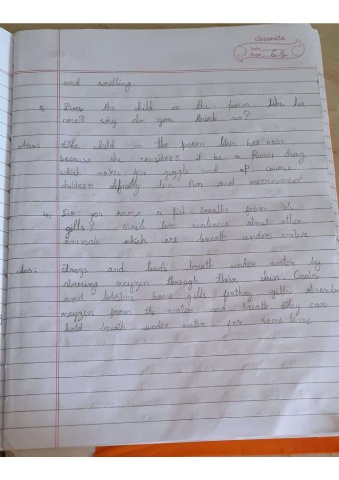 classmate
Date
Page
and smelling
3. Does the child in the poem like her
nose? Why do you think so?
Ans: The child in the poem likes her nose
because she considers it be a funny thing
which makes her giggle and of course
children for fun and merriment
4. Do you know a fish breaths from its
gills? Write two sentences about other
animals which are breath under water
Ans: Frogs and toads breath under water by
oxygen through their skin. Crabs
and have gills feathery gills absorbs
oxygen from the water and breath they can
hold breath under water for some time